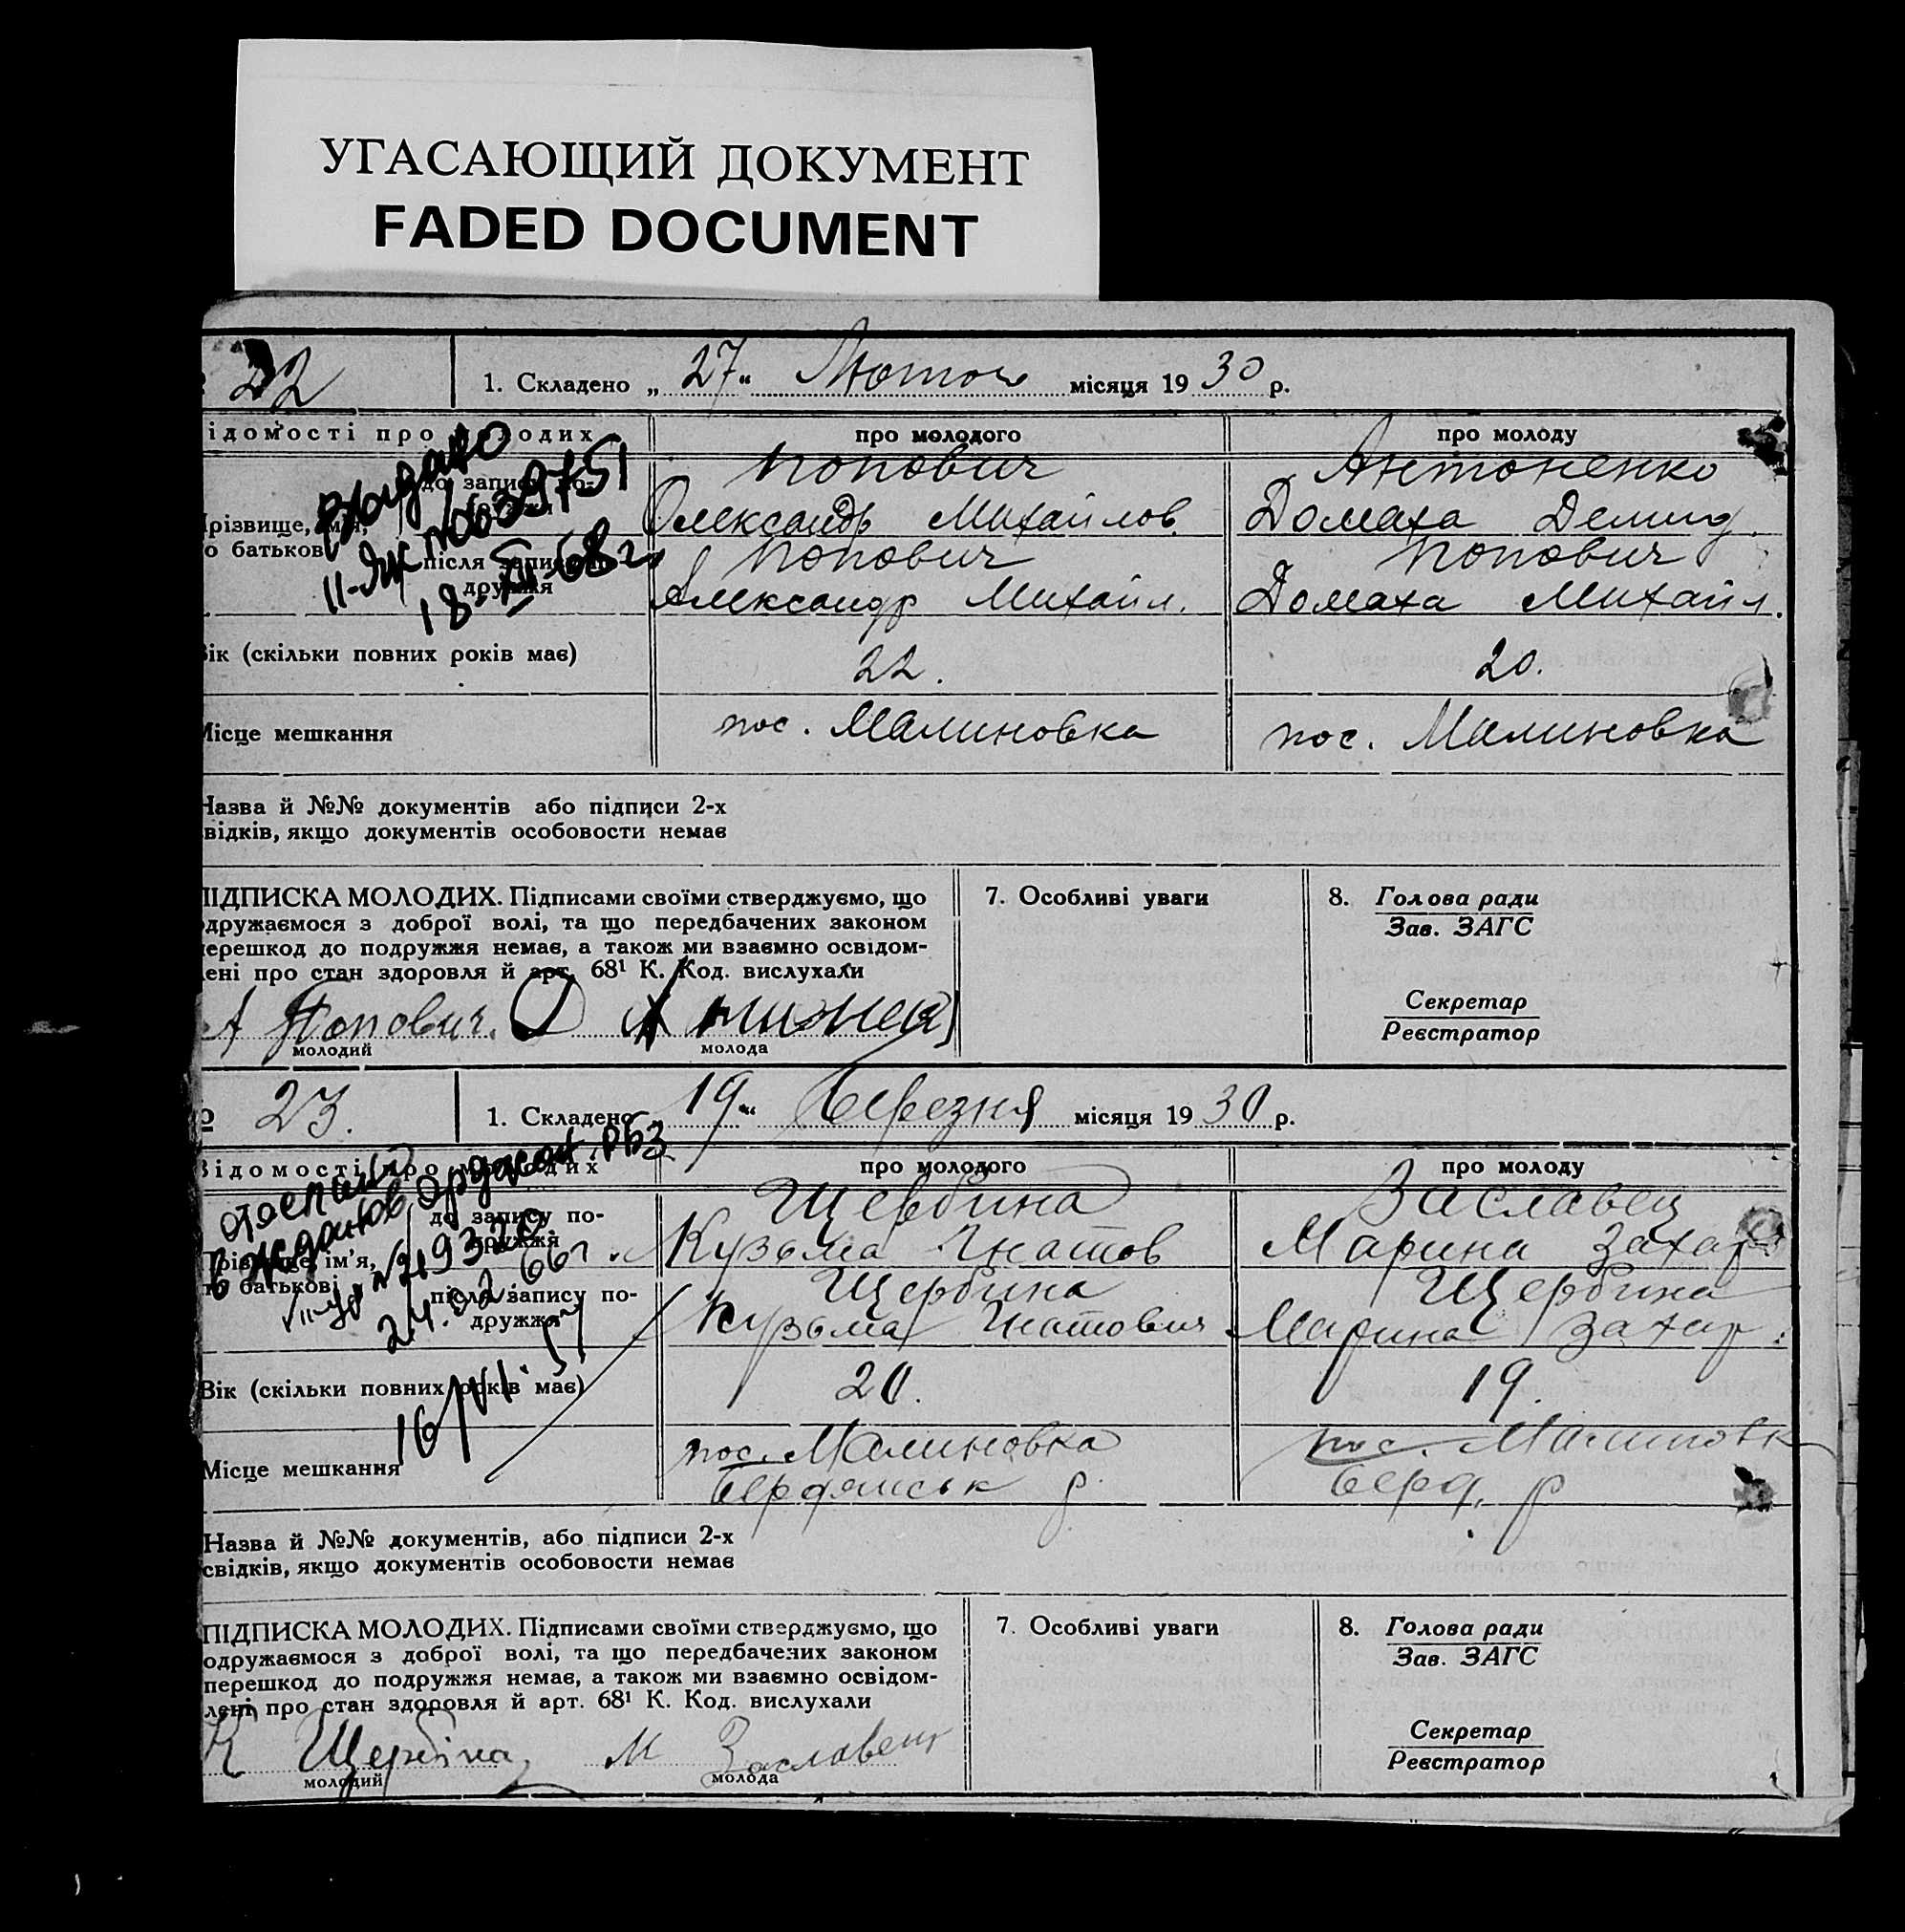 УГАСАЮЩИЙ ДОКУМЕНТ
FADED DOCUMENT
22
1. Складено „ 27 “ Лютого місяця 19 30 р.
ідомості про молодих
про молодого
про молоду
до запису по-
Попович
Антоненко
різвище, ім'я,
Олександр Михайлов.
Домаха Демид.
о батькові
після запису
дружжя
Попович
Попович
Александр Михайл.
Домаха Михайл.
Видано
II-ЯК № 039751
18. 68 г.
ік (скільки повних років має)
22.
20.
Місце мешкання
пос. Малиновка
пос. Малиновка
Назва й №№ документів або підписи 2-х
відків, якщо документів особовости немає
ПІДПИСКА МОЛОДИХ. Підписами своїми стверджуємо, що
одружаємося з доброї волі, та що передбачених законом
ерешкод до подружжя немає, а також ми взаємно освідом-
ені про стан здоровля й арт. 68¹ К. Код. вислухали
А Попович.
молодий
молода
7. Особливі уваги
8. Голова ради
Зав. ЗАГС
Секретар
Реєстратор
23.
1. Складено 19 “ Березня місяця 19 30 р.
Відомості про молодих
про молодого
про молоду
до запису по-
дружжя
Щербина
Заславец
Прізвище, ім'я,
Кузьма Гнатов
Марина Захар
по батькові
після запису по-
дружжя
Щербина
Щербина
Кузьма Гнатович
Марина Захар.
24. 02 66 г.
16/VI.
Вік (скільки повних років має)
20.
19.
Місце мешкання
пос. Малиновка
Бердянськ р.
пос. Малиновк
Берд. р
Назва й №№ документів, або підписи 2-х
свідків, якщо документів особовости немає
ПІДПИСКА МОЛОДИХ. Підписами своїми стверджуємо, що
одружаємося з доброї волі, та що передбачених законом
перешкод до подружжя немає, а також ми взаємно освідом-
лені про стан здоровля й арт. 68¹ К. Код. вислухали
К Щербина
молодий
М Заславец
молода
7. Особливі уваги
8. Голова ради
Зав. ЗАГС
Секретар
Реєстратор